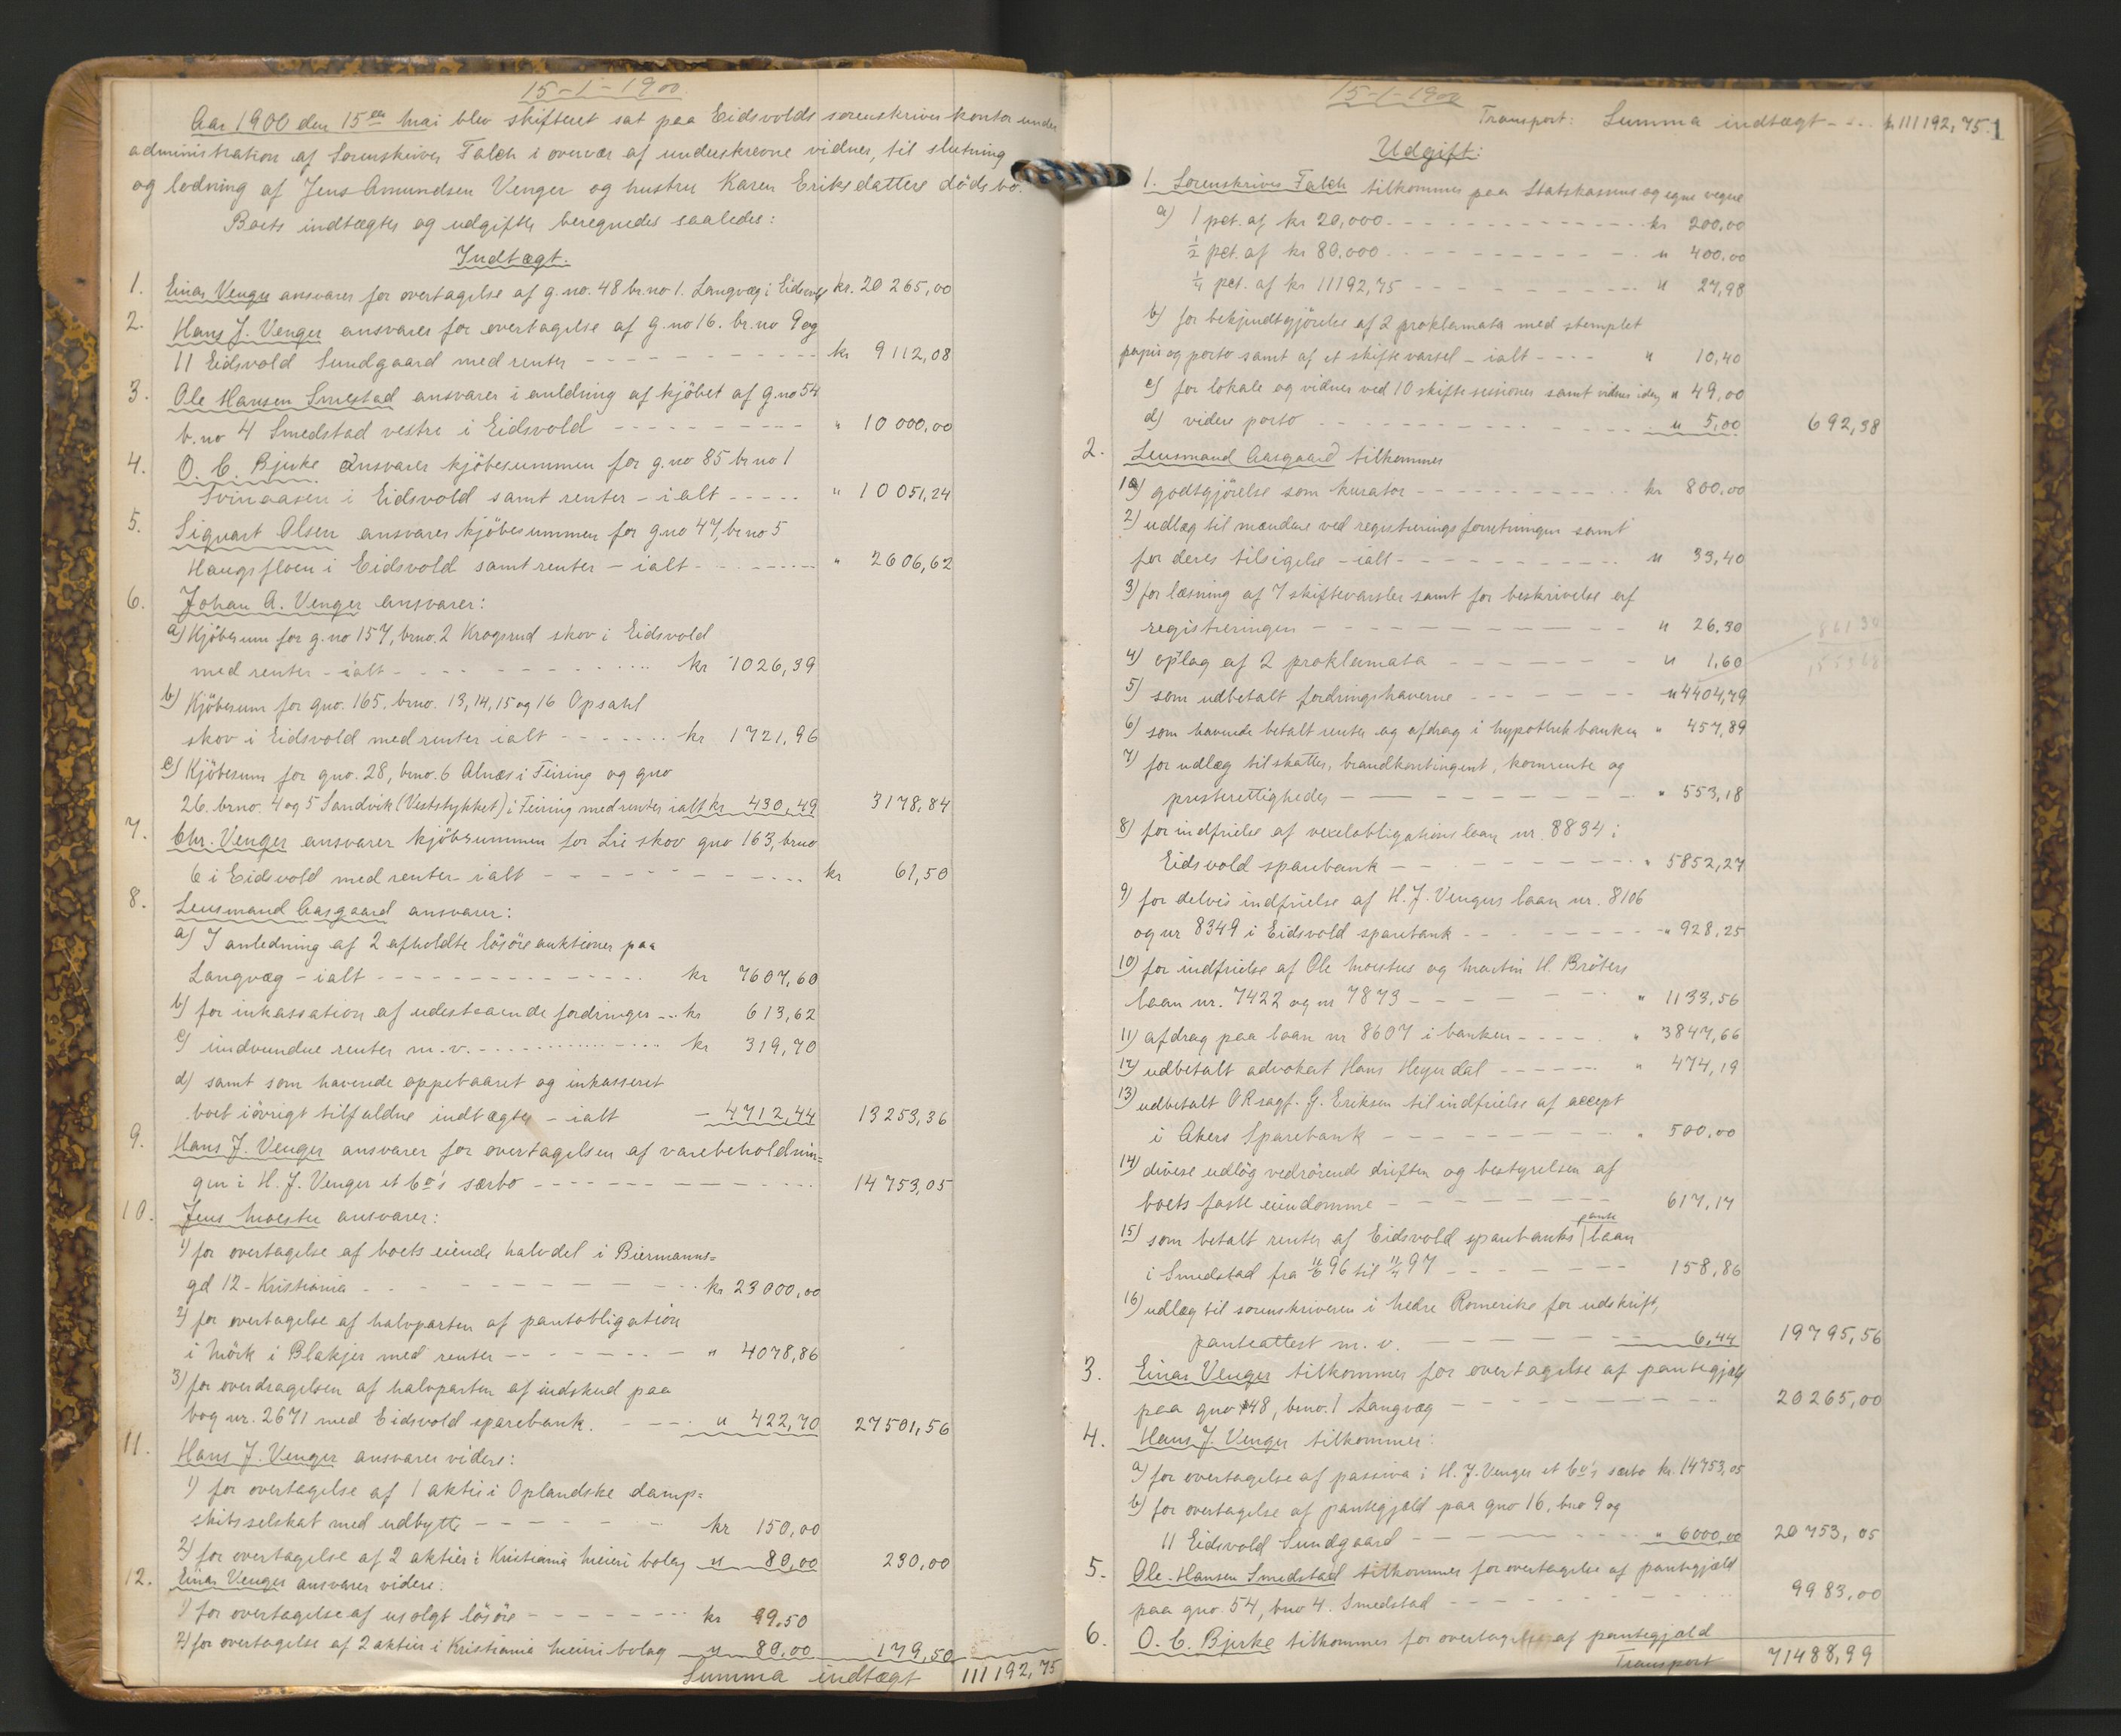 15-1-1900.
Aar 1900 den 15de mai blev skifteret sat paa Eidsvolds sorenskriver kontor under
administration af Sorenskriver Falch i overvær af underskrevne vidner, til slutning
og lodning af Jens Amundsen Venger og hustru Karen Eriksdatters dödsbo.
Boets indtægter og udgifter beregnedes saaledes:
Indtægt.
1. Einar Venger ansvarer for overtagelse af g.no. 48 br.no 1. Langvæg i Eidsvold kr. 20 265,00
2. Hans J. Venger ansvarer for overtagelse af g.no 16. br.no 9 og
11 Eidsvold Sundgaard med renter - - - kr 9 112,08
3. Ole Hansen Smestad ansvarer i anldning af kjöbet af g.no 54
b.no 4 Smedstad vestre i Eidsvold - - - " 10 000,00
4. O. C. Bjerke ansvarer kjöbesummen for g.no 85 br no 1
Svinaasen i Eidsvold samt renter - ialt - - - " 10 051,24
5. Sigvart Olsen ansvarer kjöbesummen for g.no 47, br no 5
Haugsfloen i Eidsvold samt renter - ialt - - - " 2606,62
6. Johan A. Venger ansvarer:
a) Kjöbesum for g.no 157, brno. 2 Krogsrud skov i Eidsvold
med renter - ialt - - - kr 1026,39
b) Kjöbesum for gno. 165. brno. 13, 14, 15 og 16 Opsahl
skov i Eidsvold med renter ialt - - - kr 1721,96
c) Kjöbesum for gno. 28, brno. 6 Alnæs i Feiring og gno
26. brno. 4 og 5 Sandvik (Veststykket) i Feiring med renter ialt kr 430,49 3178,84
7. Chr. Venger ansvarer kjöbsummen for Lie skov gno 163, brno
6 i Eidsvold med renter - ialt - - - kr 61,50
8. Lensmand Aasgaard ansvarer:
a) I anledning af 2 afholdte lösöreauktioner paa
Langvæg - ialt - - - kr 7607,60
b) for inkassation af udestaaende fordringer - - kr 613,62
c) indvundne renter m.v. - - - kr 319,70
d) samt som havende oppebaaret og inkasseret
boet iövrigt tilfaldne indtægter - ialt - 4712,44 13253,36
9. Hans J. Venger ansvarer for overtagelsen af varebeholdnin=
gen i H. J. Venger et Co's særbo - - - 14753,05
10. Jens Moestue ansvarer:
1) for overtagelse af boets eiende halvdel i Biermanns=
gd 12 - Kristiania - - - kr 23000,00
2) for overtagelse af halvparten af pantobligation
i Mörk i Blakjer med renter - - - " 4078,86
3) for overdragelsen af halvparten af indskud paa
bog nr. 2671 med Eidsvold sparebank. - - - " 422,70 27501,56
11. Hans J. Venger ansvarer videre:
1) for overtagelse af 1 aktie i Oplandske damp=
skibsselskab med udbytte - - - kr 150,00
2) for overtagelse af 2 aktier i Kristiania meieri bolag " 80,00 230,00
12. Einar Venger ansvarer videre:
1) for overtagelse af usolgt lösöre - - - kr 99,50
2) for overtagelse af 2 aktier i Kristiania meieri bolag " 80,00 179,50
Summa indtægt 111192,75
15-1-1900
Transport: Summa indtægt - - - kr 111192,75. 1
Udgift:
1. Sorenskriver Falch tilkommer paa Statskassens og egne vegne
a) 1 pct. af kr 20,000 - - - kr 200,00
½ pct. af kr 80.000 - - - " 400,00
¼ pct. af kr 11192,75 - - - " 27,98
b) for bekjendtgjörelse af 2 proklamata med stemplet
papir og porto samt af et skiftevarsel - ialt - - - " 10,40
c) for lokale og vidner ved 10 skiftesessioner samt vidner idag " 49,00
d) videre porto - - - " 5,00 692,38
2. Lensmand Aasgaard tilkommer
1) godtgjörelse som kurator - - - kr 800,00
2) udlæg til mændene ved registreringsforretningen samt
for deres tilsigelse - ialt - - - " 33,40
3) for læsning af 7 skiftevarsler samt for beskrivelse af
registreringen - - - " 26,30
4) oplag af 2 proklamata - - - " 1,60
5) som udbetalt fordringshaverne - - - " 4404,79
6) som havende betalt renter og afdrag i hypothekbanken " 457,89
7) for udlæg til skatter, brandkontingent, kornrente og
presterettigheder - - - " 553,18
8) for indfrielse af vexelobligationslaan nr. 8834 i
Eidsvold sparebank - - - " 5852,27
9) for delvis indfrielse af H. J. Vengers laan nr. 8106
og nr 8349 i Eidsvold sparebank - - - " 928,25
10) for indfrielse af Ole Moestues og Martin H. Bråtens
laan nr. 7422 og nr 7873 - - - " 1133,56
11) afdrag paa laan nr 8607 i banken - - - " 3847,66
12) udbetalt advokat Hans Heyerdal - - - " 474,19
13) udbetalt ORsagf. G. Eriksen til indfrielse af accept
i Akers Sparebank - - - " 500,00
14) diverse udlög vedrörende driften og bestyrelsen af
boets faste eiendomme - - - 617,17
15) som betalt renter af Eidsvold sparebanks pante laan
i Smedstad fra 11/6 96 til 11/4 97 - - - 158,86
16) udlæg til sorenskriveren i Nedre Romerike for udskrift,
panteattest m.v. - - - 6,44 19795,56
3. Einar Venger tilkommer for overtagelse af pantegjæld
paa gno 48, brno. 1 Langvæg - - - 20265,00
4. Hans J. Venger tilkommer:
a) for overtagelse af passiva i H. J. Venger et Co's særbo kr. 14753,05
b) for overtagelse af pantegjæld paa gno 16, bno 9 og
11 Eidsvold Sundgaard - - - " 6000,00 20753,05
5. Ole Hansen Smedstad tilkommer for overtagelse af pantegjæld
paa gno. 54, bno 4. Smedstad - - - 9983,00
6. O. C. Bjerke tilkommer for overtagelse af pantegjæld
Transport 71488,99